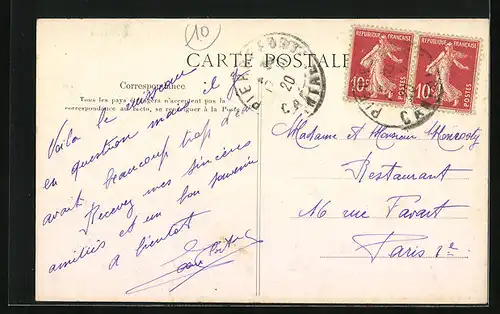 10
CARTE POSTALE
Correspondance
Tous les pays étrangers n'acceptent pas la
correspondance au recto, se renseigner à la Poste
REPUBLIQUE FRANÇAISE
10c POSTES
REPUBLIQUE FRANÇAISE
10c POSTES
20
CANTAL
Voila le ruisseau
en question mais il y
avait beaucoup trop d'eau
Recevez mes sincères
amitiés et un bon souvenir
a bientot
Madame et Monsieur
Restaurant
16 rue Favart
Paris 2e